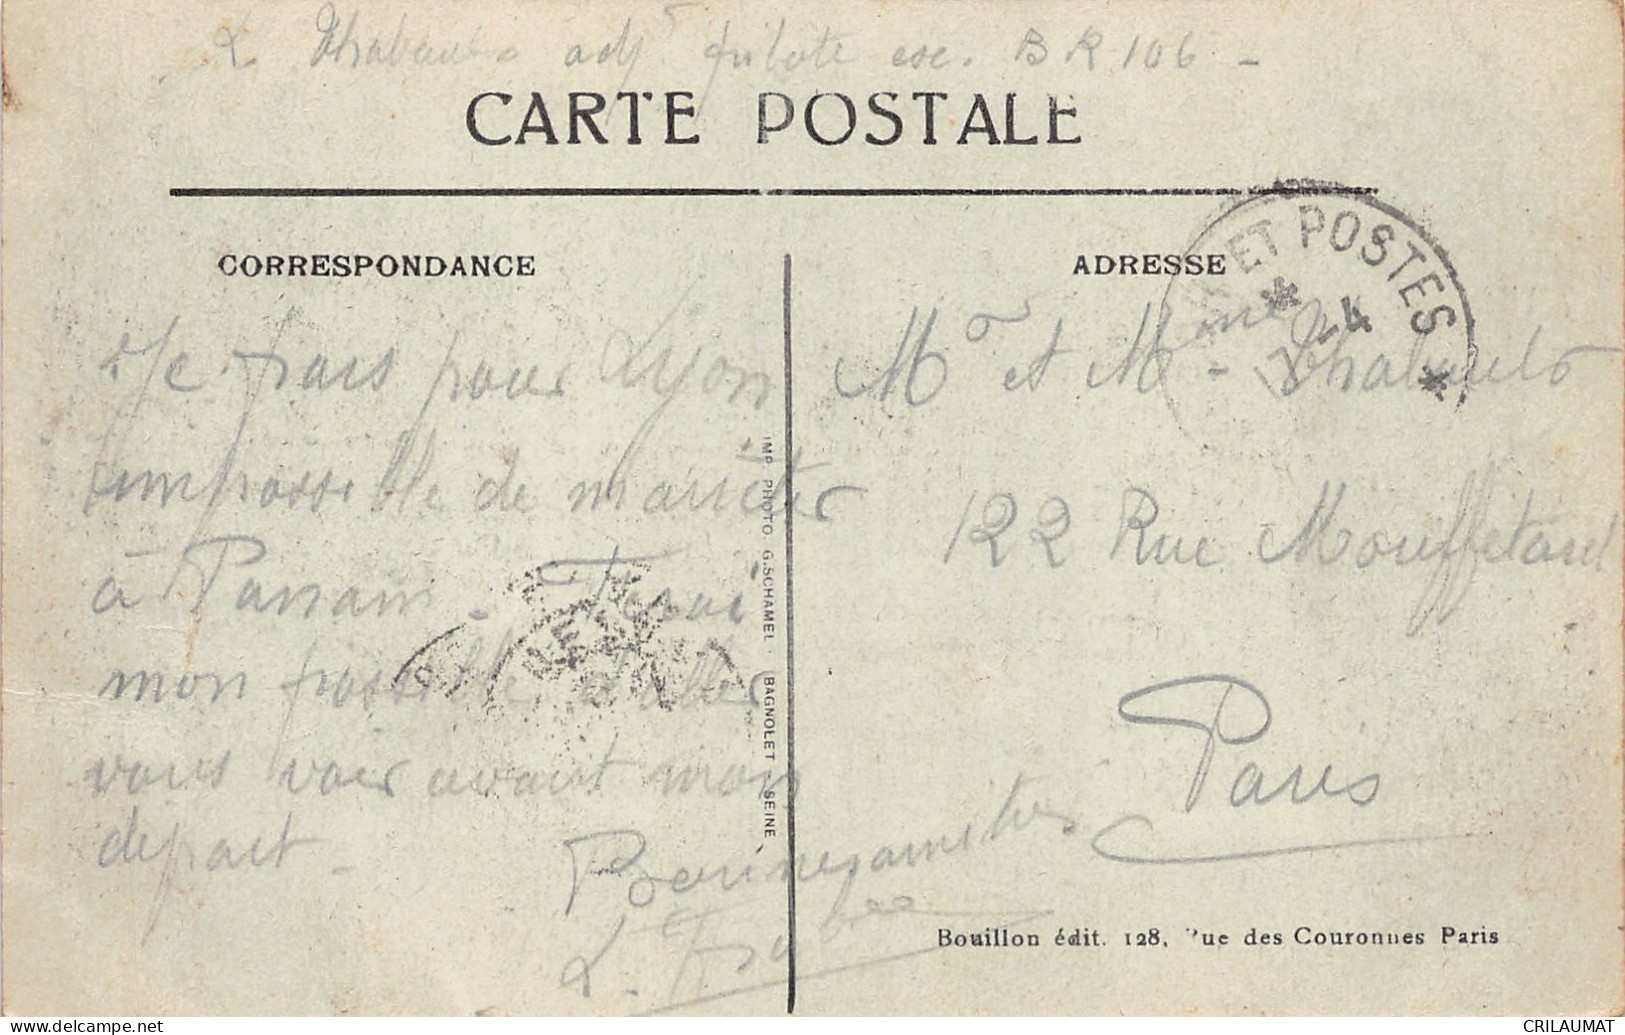 adjt pilote esc. BR 106 -
CARTE POSTALE
CORRESPONDANCE
Je pars pour Lyon
impossible de marrêter
à Panam. Ferai
mon possible d'aller
vous voir avant mon
depart -
L.
IMP. PHOTO. G. SCHAMEL. BAGNOLET SEINE
ADRESSE
ET POSTES
-4
Mr et Mme
122 Rue Mouffetard
Paris
Bouillon édit. 128, Rue des Couronnes Paris
CRILAUMAT